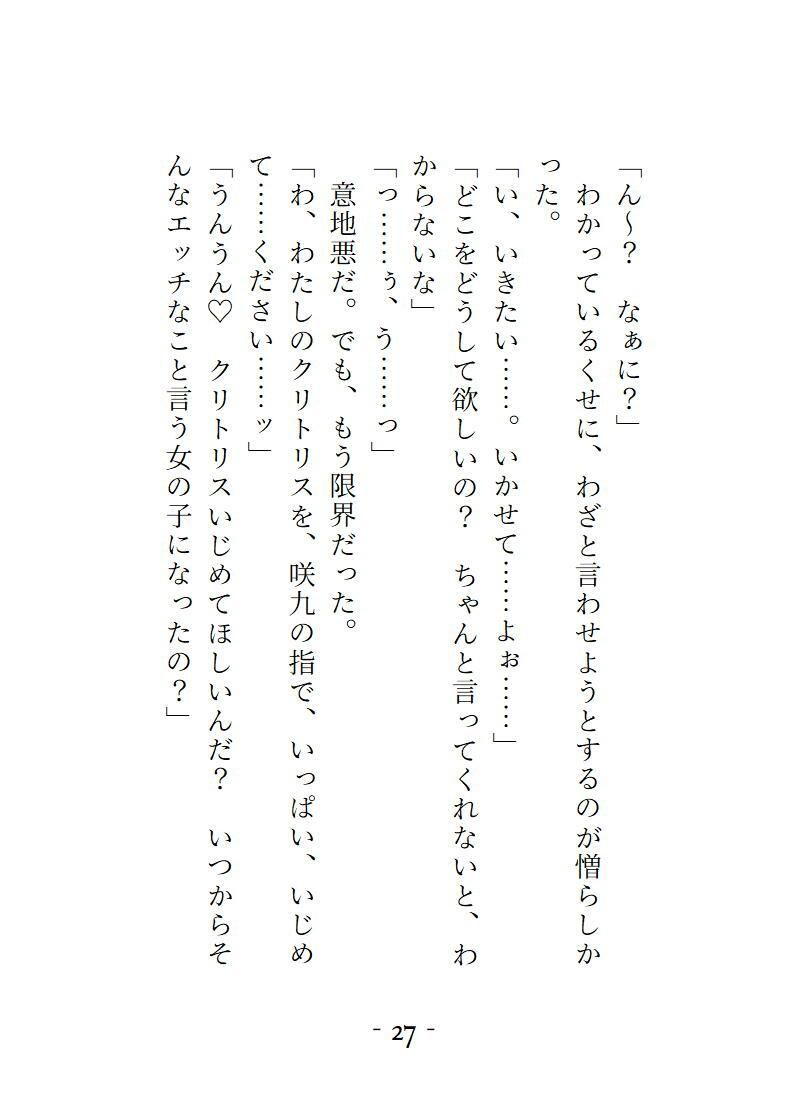 「ん～？　なぁに？」
　わかっているくせに、わざと言わせようとするのが憎らしか
った。
「い、いきたい……。いかせて……よぉ……」
「どこをどうして欲しいの？　ちゃんと言ってくれないと、わ
からないな」
「っ……ぅ、う……っ」
　意地悪だ。でも、もう限界だった。
「わ、わたしのクリトリスを、咲九の指で、いっぱい、いじめ
て……ください……ッ」
「うんうん♡　クリトリスいじめてほしいんだ？　いつからそ
んなエッチなこと言う女の子になったの？」
- 27 -